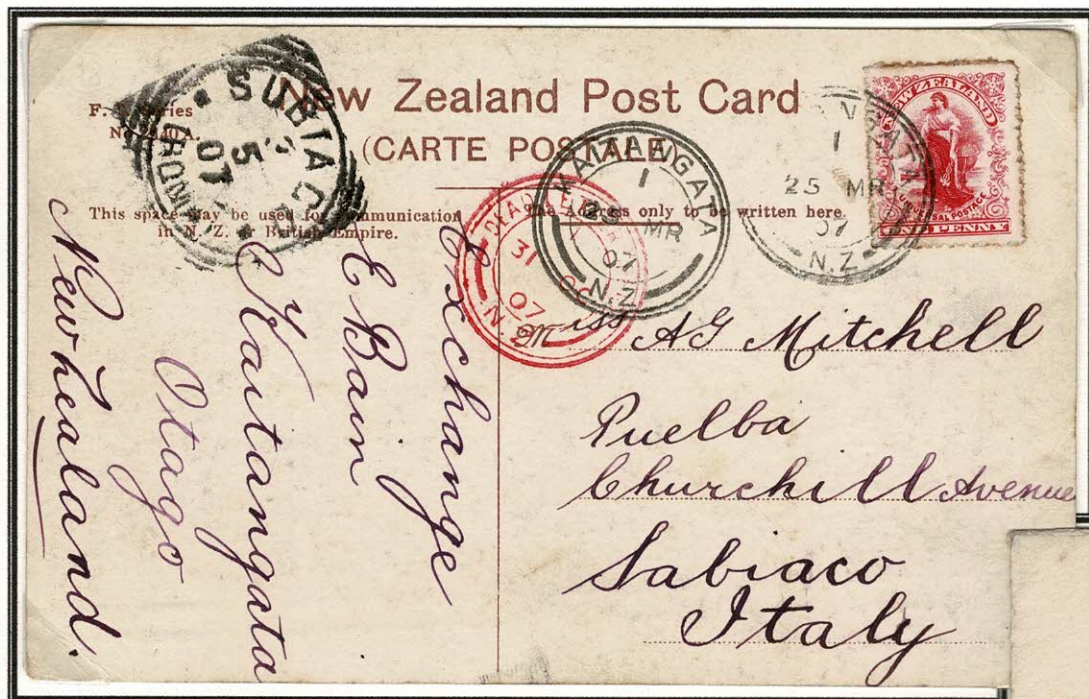 New Zealand Post Card
(CARTE POSTALE)
F. Series
This space may be used for Communication
in N. Z. or British Empire.
The Address only to be written here.
SUBIACO
5
07
KAITANGATA
1
25 MR
07
N.Z
1
25 MR
07
N.Z
DEAD LETTER
31
07
N.Z
NEW ZEALAND
UNIVERSAL POSTAGE
ONE PENNY
Exchange
E Bain
Kaitangata
Otago
New Zealand.
Miss AG Mitchell
Puelba
Churchill Avenue
Sabiaco
Italy